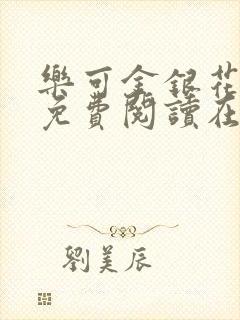 樂可金銀花
免費閱讀在
劉美辰